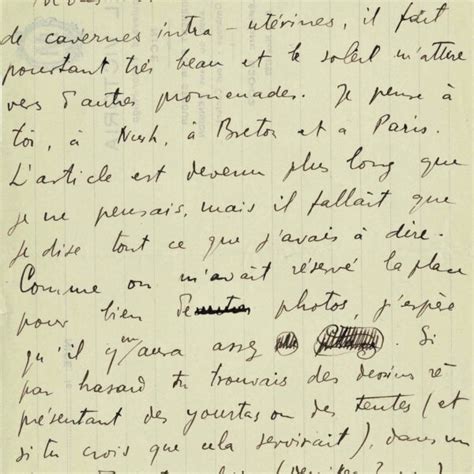 de cavernes intra-utérines, il fait
pourtant très beau et le soleil m'attire
vers d'autres promenades. Je pense à
toi, à Nush, à Breton et à Paris.
L'article est devenu plus long que
je ne pensais, mais il fallait que
je dise tout ce que j'avais à dire.
Comme on m'avait réservé la place
pour bien des photos, j'espère
qu'il y aura assez. Si
par hasard tu trouvais des dessins re
présentant des yourtas ou des tentes (et
si tu crois que cela servirait), dans un